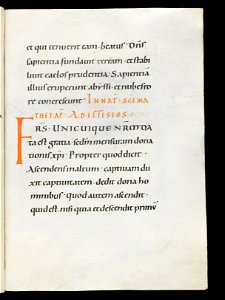 et qui tenuerit eam beatus. Dñs
sapientia fundavit terram. et stabi
luit caelos prudentia. Sapientia
illius eruperunt abyssi. et nubes ro
re concrescunt. IN NAT. SCI MA
THEI AP. AD EFESIOS
FRS. Unicuique nrm̄ da
ta est gratia. sedm mensuram dona
tionis xpi. Propter quod dicit.
Ascendens in altum. captivam du
xit captivitatem. dedit dona ho
minibus. Quod autem ascendit.
quid est. nisi quia et descendit primū